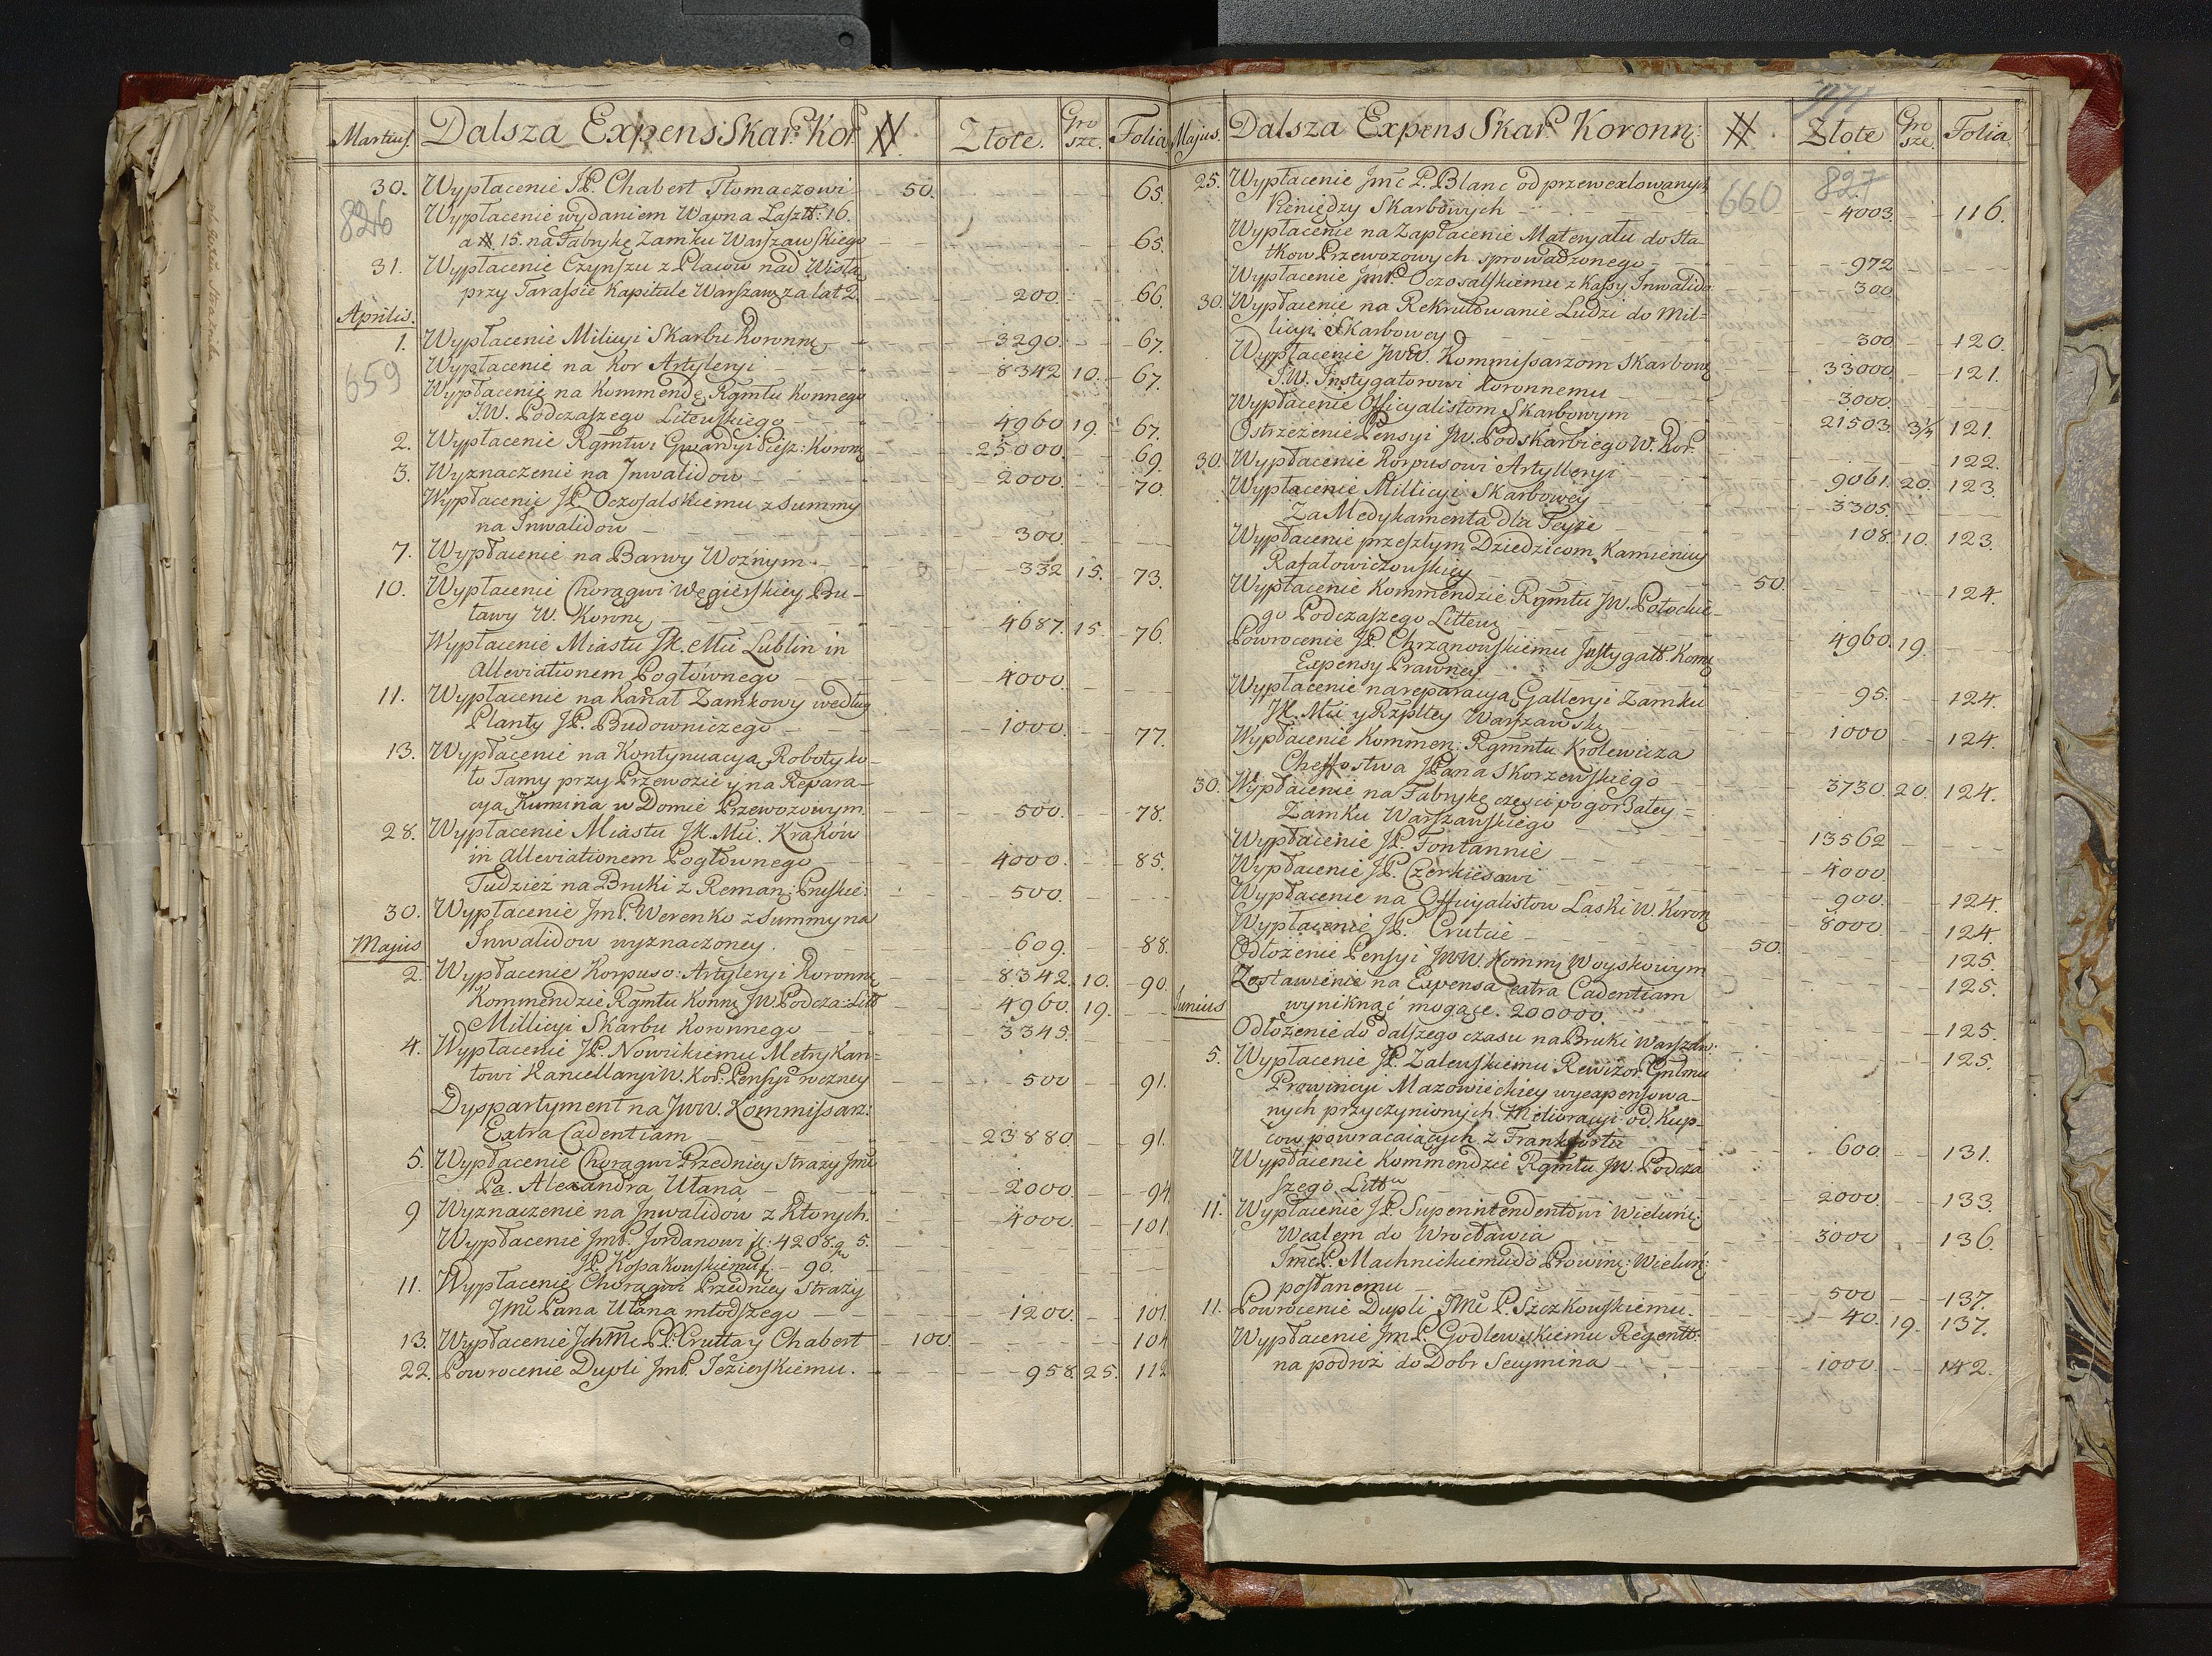 Martius. Dalsza Expens Skar: Kor # Złote. Gro sze. Folia
30. Wypłacenie JP. Chabert Tłomaczowi 50. 65.
826 Wypłacenie wydaniem Wapna Laszt: 16.
a # 15. na Fabrykę Zamku Warszawskiego 65.
31. Wypłacenie Czynszu z Placu nad Wisłą
przy Tarassie Kapitule Warszaw: za lat 2. 200. 66.
Aprilis.
1. Wypłacenie Milicyi Skarbu Koronng 3290. 67.
659 Wypłacenie na Kor Artyleryi 8342 10. 67.
Wypłacenie na Kommendę Rgmtu Konnego
JW. Podczaszego Litewskiego 4960 19. 67.
2. Wypłacenie Rgmtwi Gwardyi Piesz: Koronng 25000. 69.
3. Wyznaczenie na Jnwalidow 2000. 70.
Wypłacenie JP. Oczosalskiemu z Summy
na Jnwalidow 300.
7. Wypłacenie na Barwy Woźnym. 332 15. 73.
10. Wypłacenie Chorągwi Węgierskiey Bu-
ławy W. Koronng 4687. 15. 76.
Wypłacenie Miastu JK. Mći Lublin in
Alleviationem Pogłównego 4000.
11. Wypłacenie na Kanał Zamkowy według
Planty JP. Budowniczego 1000. 77.
13. Wypłacenie na Kontynuacyą Roboty ko-
ło Tamy przy Przewozie y na Repara-
cyą Kumina w Domie Przewozowym. 500. 78.
28. Wypłacenie Miastu JK. Mći. Kraków
in Alleviationem Pogłownego 4000. 85.
Tudzież na Bruki z Reman: Pruskie: 500.
30. Wypłacenie JmP. Werenko z Summy na
Jnwalidow wyznaczoney. 609. 88.
Majus
2. Wypłacenie Korpuso: Artyleryi Koronng 8342. 10. 90.
Kommendzie Rgmtu Konng JW. Podcza: Litt 4960. 19.
Millicyi Skarbu Koronnego 3345.
4. Wypłacenie JP. Nowickiemu Metrykan-
towi Kancellaryi W. Kor: Pensyi roczney 500 91.
Dyspartyment na Jww. Kommissarz:
Extra Cadentiam 23880. 91.
5. Wypłacenie Chorągwi Przedniey Straży Jmć
Pa. Alexandra Ułana 2000. 94
9 Wyznaczenie na Jnwalidów z Ktorych. 4000. 101.
Wypłacenie JmP. Jordanowi fl: 4208. g 5.
JP. Kossakowskiemu f. 90.
11. Wypłacenie Chorągwi Przedniey Straży
Jmć Pana Ułana młodszego 1200. 101
13. Wypłacenie Jchmć PP. Crutta y Chabert 100. 104
22. Powrocenie Dupli JmP. Jezierskiemu. 958. 25. 112
Majus. Dalsza Expens Skar: Koronng: # Złote Gro sze. Folia
25. Wypłacenie Jmć P. Blanc od przewexlowanych 660 827
Pieniędzy Skarbowych 4003. 116.
Wypłacenie na Zapłacenie Materyału do Sta-
tkow Przewozowych sprowadzonego 972
Wypłacenie JmP. Oczosalskiemu z Kassy Jnwalido 300
30. Wypłacenie na Rekrutowanie Ludzi do Mil-
licyi Skarbowey 300 120.
Wypłacenie Jww. Kommissarzom Skarbowg 33000. 121.
J.W. Jnstygatorowi Koronnemu 3000.
Wypłacenie Officyalistom Skarbowym 21503. 3¼ 121.
Ostrzeżenie Pensyi JW. Podskarbiego W. Kor. 122.
30. Wypłacenie Korpusowi Artylleryi 9061. 20. 123.
Wypłacenie Millicyi Skarbowey 3305.
Za Medykamenta dla Teyże 108. 10. 123.
Wypłacenie przeszłym Dziedzicom Kamienicy
Rafałowiczowskiey 50. 124.
Wypłacenie Kommendzie Rgmtu JW. Potockie-
go Podczaszego Littewg 4960. 19.
Powrocenie JP. Chrzanowskiemu Jnstygatt. Korng
Expensy Prawney 95. 124.
Wypłacenie na reparacyą Galleryi Zamku
JK. Mći y Rzpltey Warszawsk: 1000 124.
Wypłacenie Kommen: Rgmntu Krolewicza
Cheffostwa JPana Skorzewskiego 3730. 20. 124.
30. Wypłacenie na Fabrykę częsci pogorzałey
Zamku Warszawskiego 13562
Wypłacenie JP. Fontannie 4000
Wypłacenie JP. Czerkiesowi 900. 124.
Wypłacenie na Officyalistow Laski W. Koronng 8000. 124.
Wypłacenie JP. Crutcie 50. 125.
Odłożenie Pensyi Jww. Kommg Woyskowym 125.
Zostawienie na Expensa extra Cadentiam
Junius wyniknąć mogące. 200000. 125.
Odłożenie do dalszego czasu na Bruki Warszaw: 125.
5. Wypłacenie JP. Zalewskiemu Rewizor. Gnlmu
Prowincyi Mazowieckiey wyexpensowa-
nych przyczynionych Melioracyi od Kup-
cow powracaiących z Frankfortu 600. 131.
Wypłacenie Kommendzie Rgmtu JW. Podcza
szego Litt 2000. 133.
11. Wypłacenie JP. Superintendentowi Wieluńg:
Wexlem do Wrocławia 3000 136.
JmćP. Machnickiemu do Prowinc: Wieluń:
posłanemu 500 137.
11. Powrocenie Dupli Jmć P. Szczkowskiemu. 40. 19. 137.
Wypłacenie JmP. Godlewskiemu Regentt:
na podroż do Dobr Secymina 1000. 142.